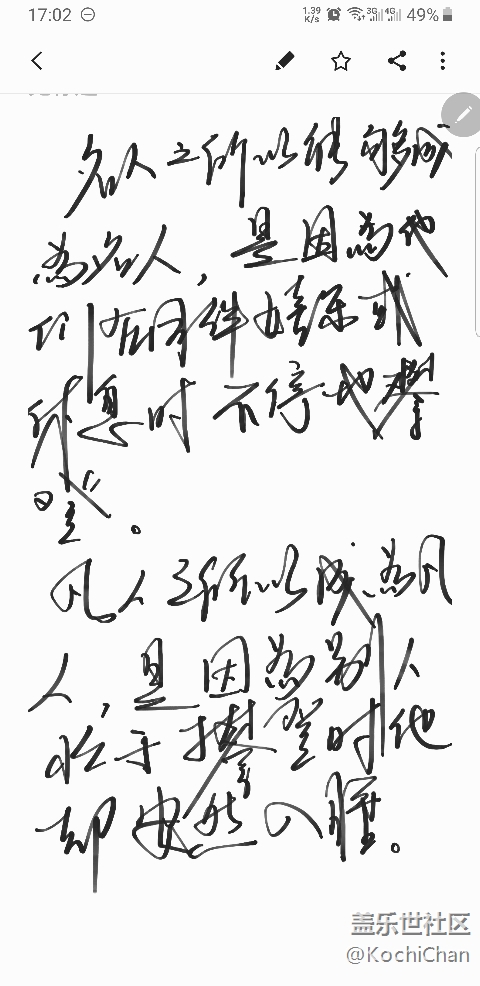 17:02
1.39 K/s 3G 4G 49%
名人之所以能够成
為名人，是因為他
们在同伴嬉乐或
休息时不停地攀
登。
凡人之所以成為凡
人，是因為别人
忙于攀登时他
却安然入睡。
盖乐世社区
@KochiChan